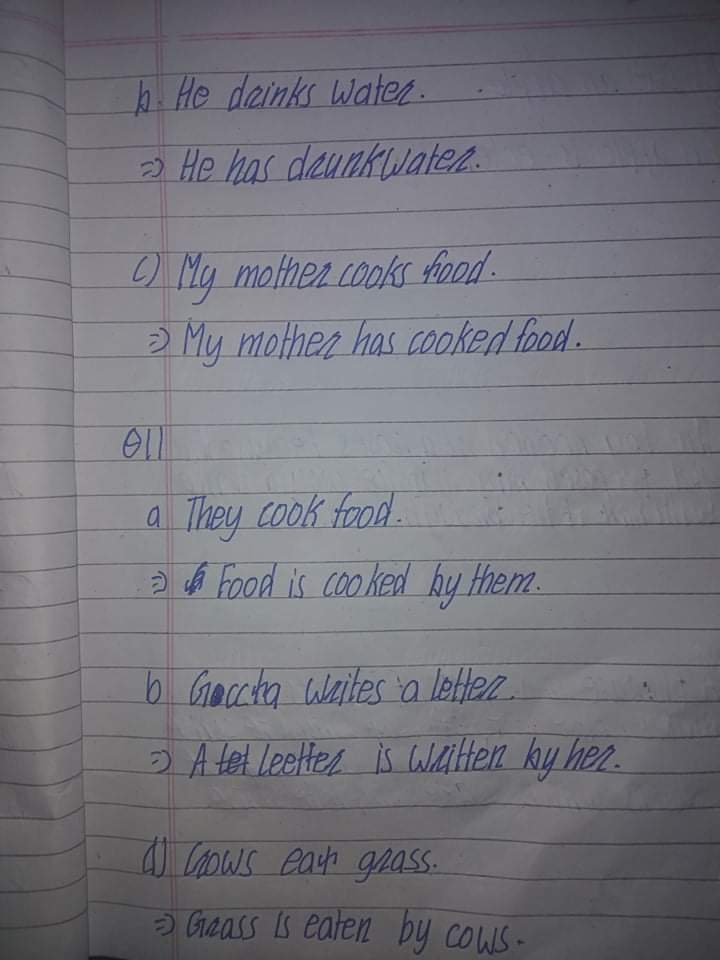 b. He drinks water.
=> He has drunk water.
c) My mother cooks food.
=> My mother has cooked food.
Q11
a They cook food.
=> Food is cooked by them.
b writes a letter.
=> A Leetter is written by her.
d) Cows eat grass.
=> Grass is eaten by cows.